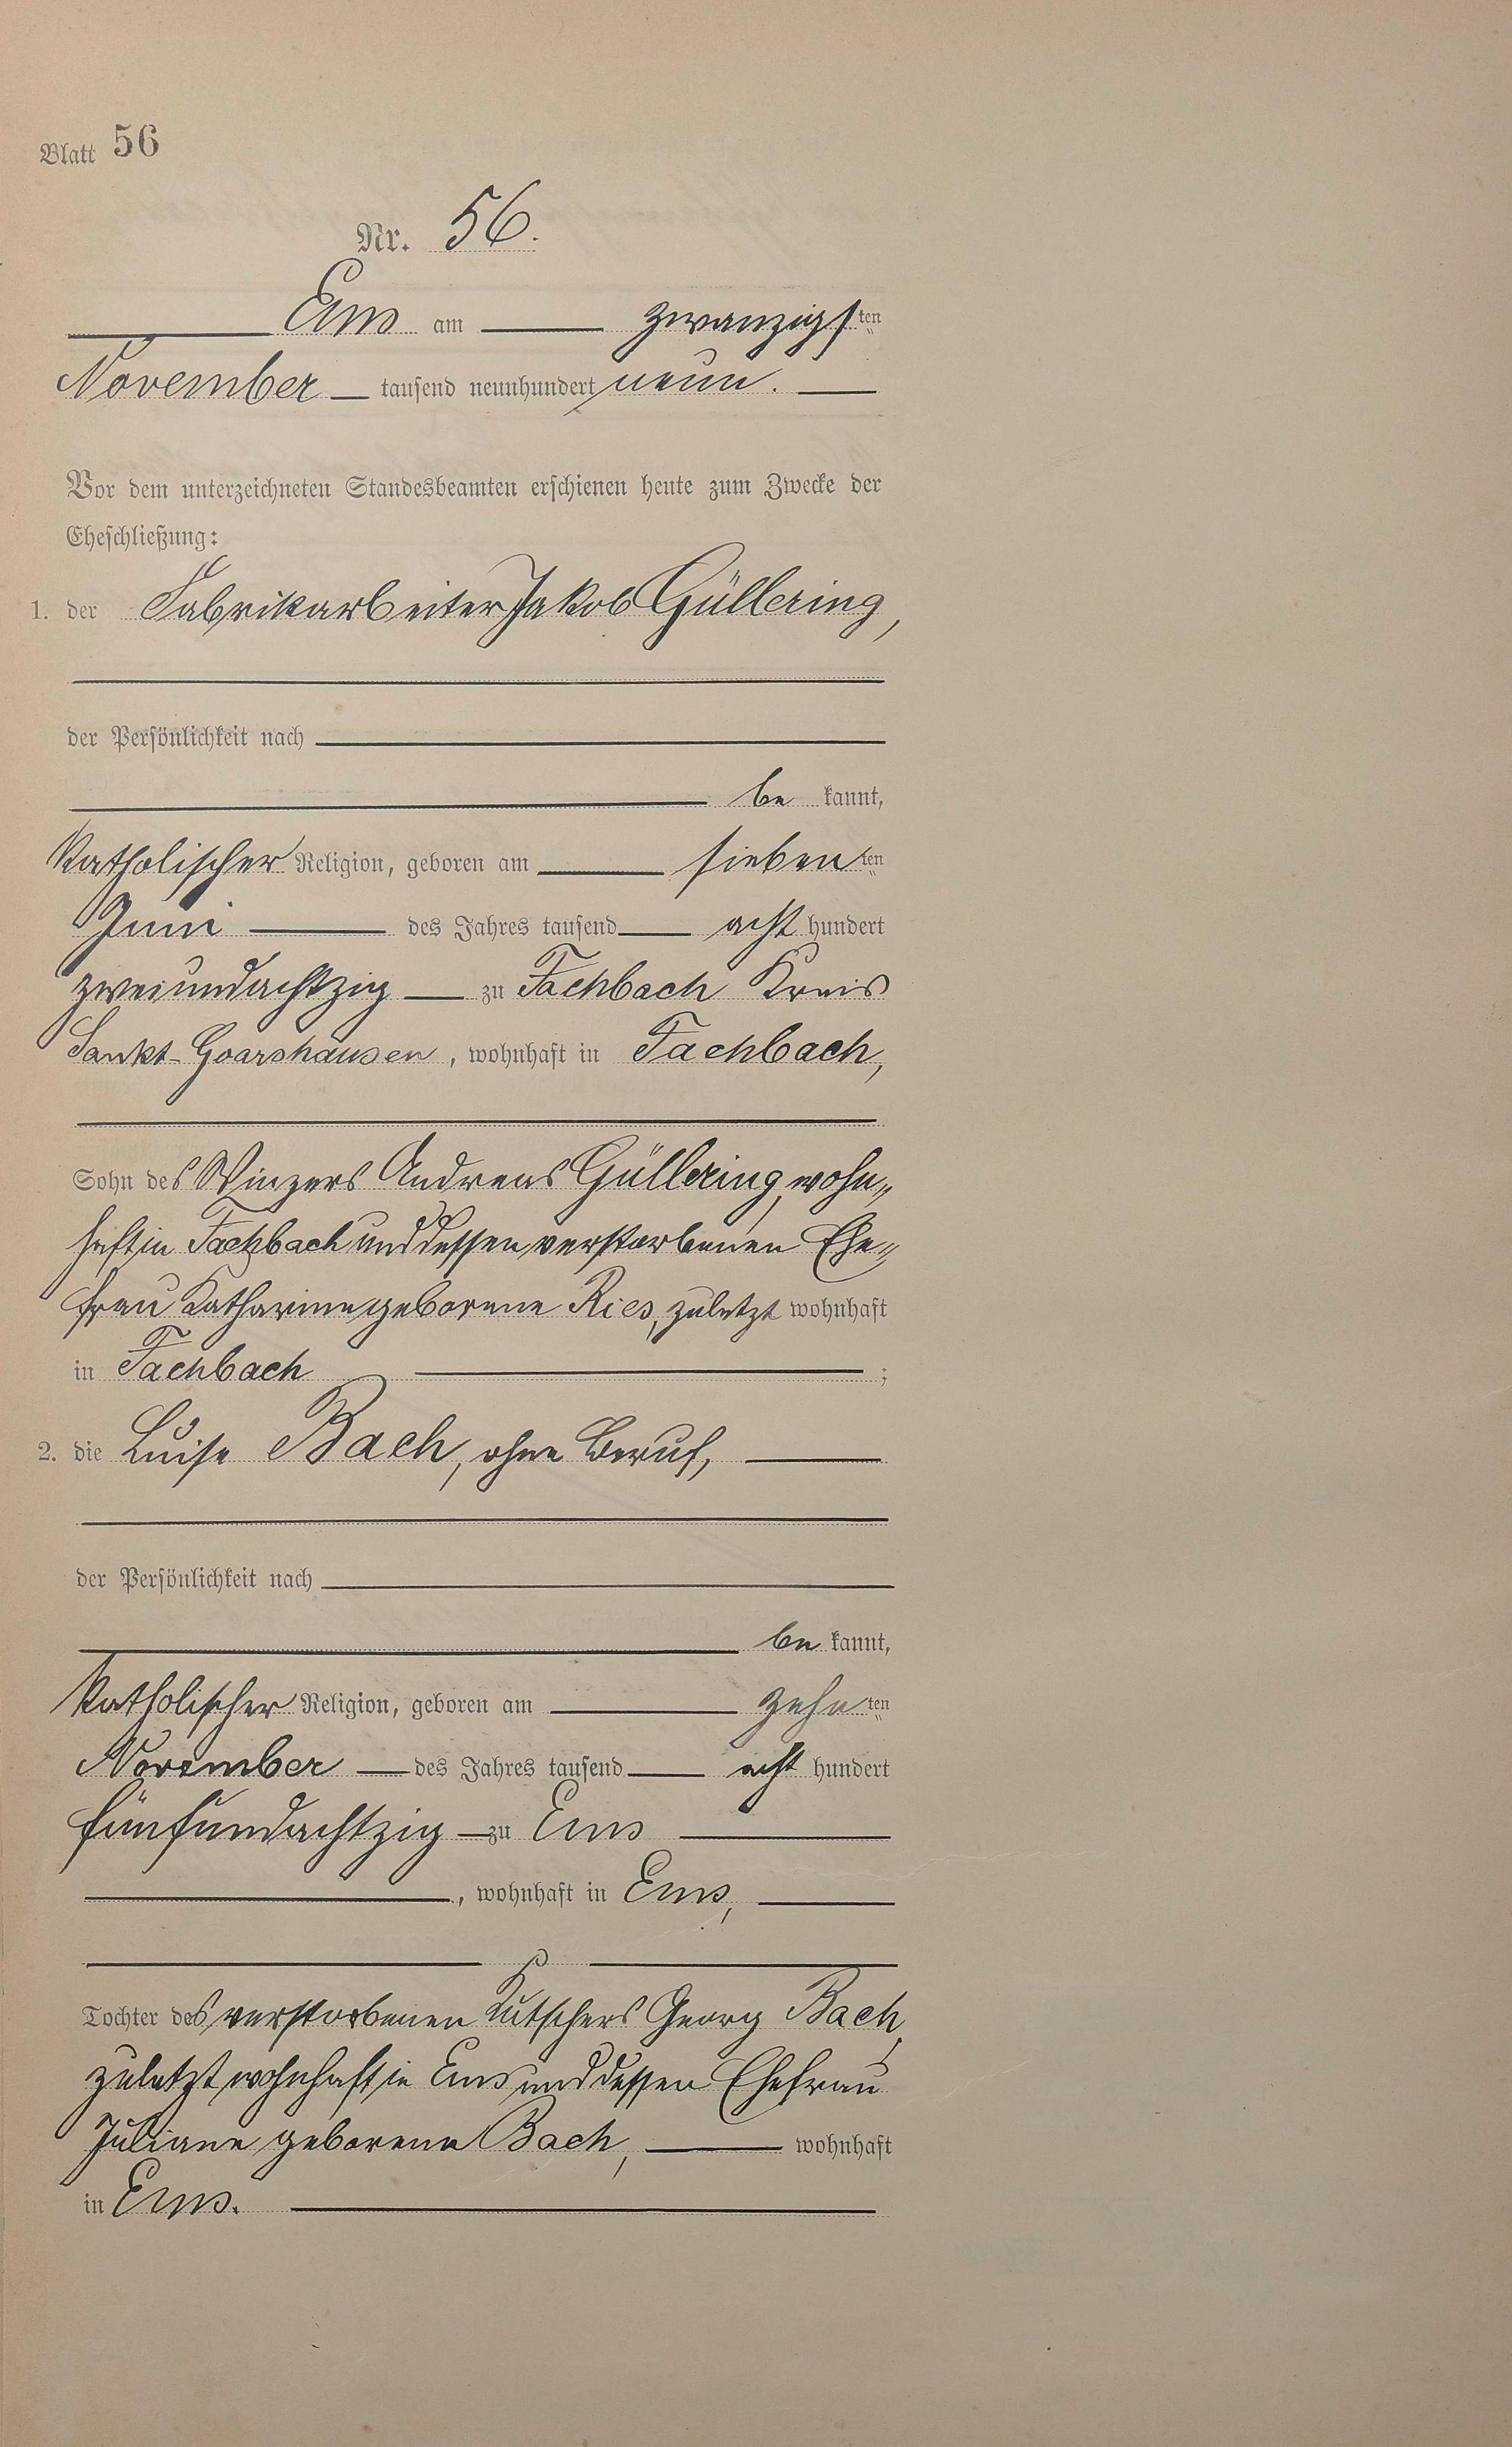 Blatt 56
Nr. 56.
Ems am zwanzigsten
November tausend neunhundert neun.
Vor dem unterzeichneten Standesbeamten erschienen heute zum Zwecke der
Eheschließung:
1. der Fabrikarbeiter Jakob Güllering,
der Persönlichkeit nach
be kannt,
katholischer Religion, geboren am siebenten
Juni des Jahres tausend acht hundert
zweiundachtzig zu Fachbach Kreis
Sankt-Goarshausen, wohnhaft in Fachbach,
Sohn des Winzers Andreas Güllering, wohn„
haft in Fachbach und dessen verstorbenen Ehe„
frau Katharine geborene Ries, zuletzt wohnhaft
in Fachbach ;
2. die Luise Bach, ohne Beruf,
der Persönlichkeit nach
be kannt,
katholischer Religion, geboren am zehnten
November des Jahres tausend acht hundert
fünfundachtzig zu Ems
, wohnhaft in Ems,
Tochter des verstorbenen Kutschers Georg Bach,
zuletzt wohnhaft in Ems und dessen Ehefrau
Juliane geborene Bach, wohnhaft
in Ems.